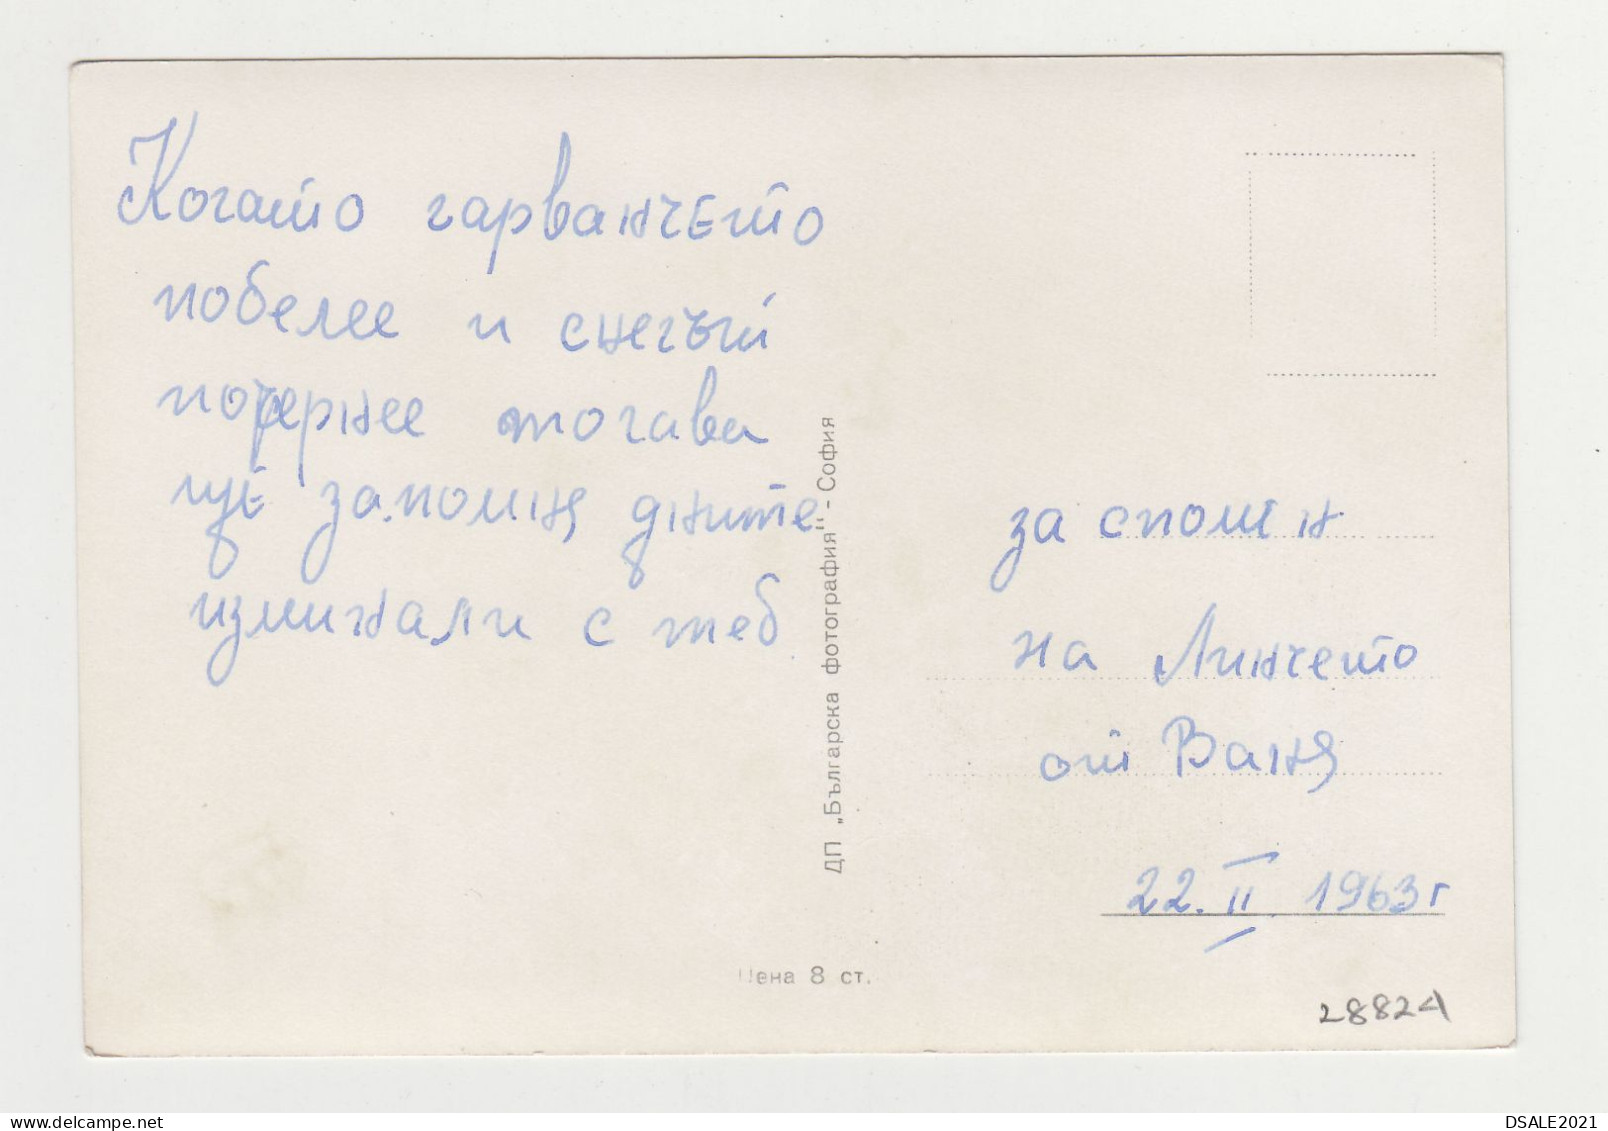 Когато гарванчето
побелее и снегът
почернее тогава
ще запомня дните
изминали с теб
ДП „Българска фотография" - София
за спомен
на Линчето
от Ваня
22. II. 1963 г
Цена 8 ст.
28824
DSALE2021